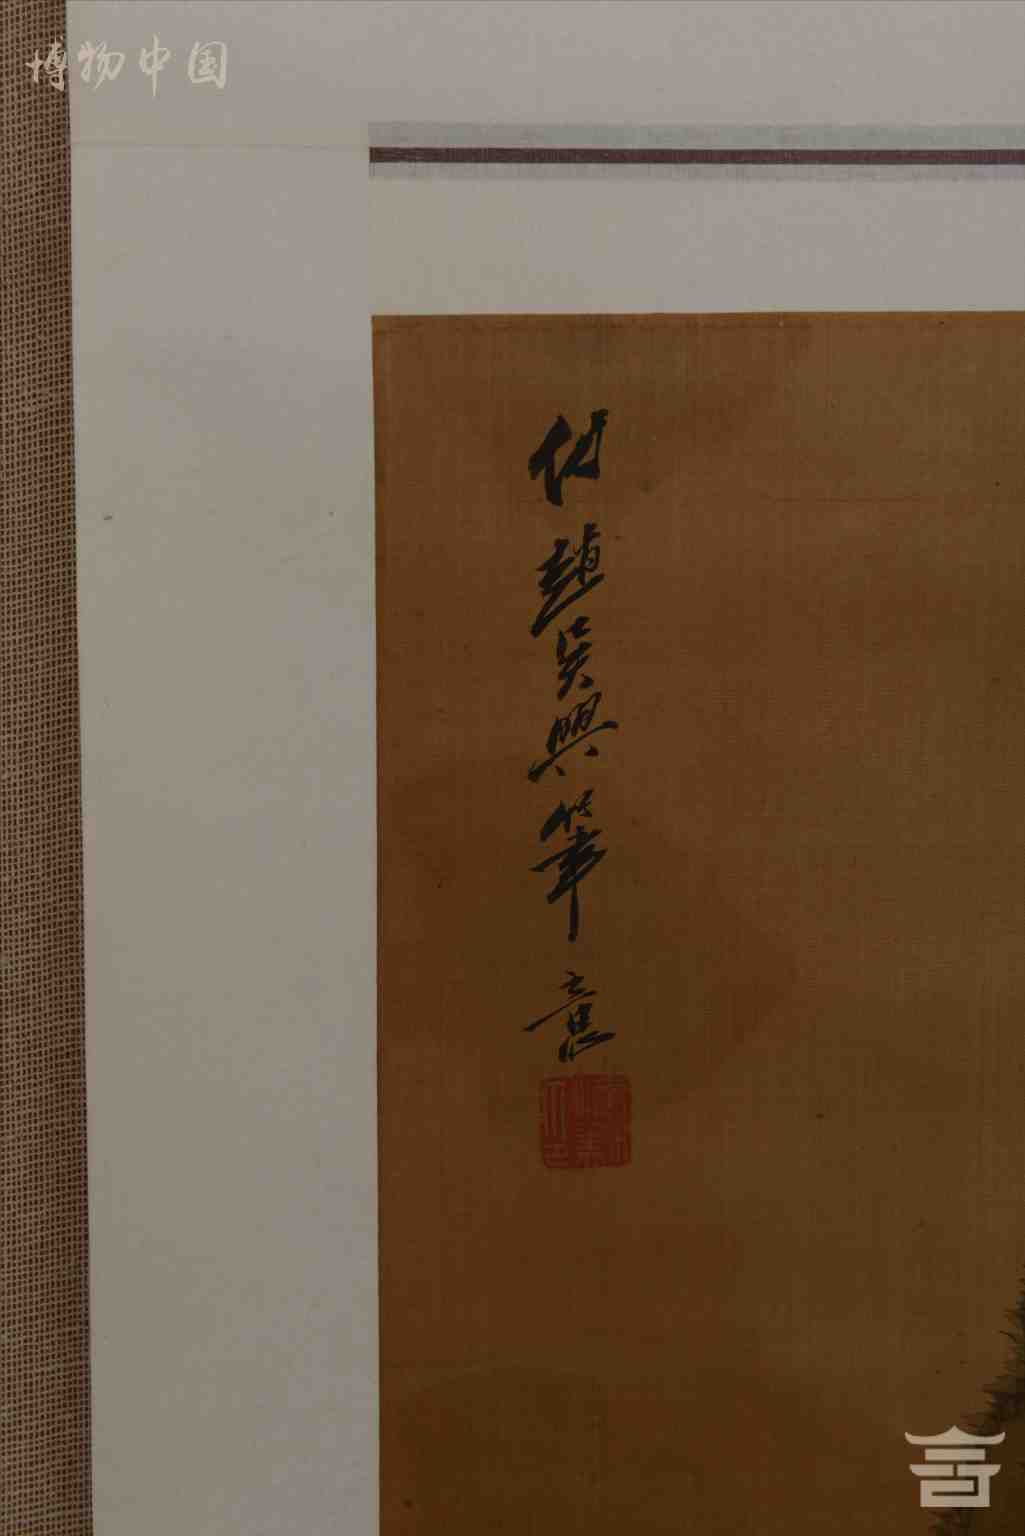 博物中国
仿趙吳興筆意